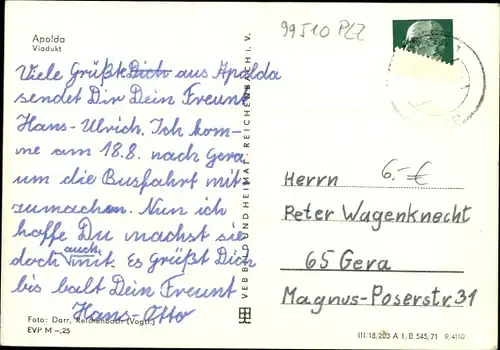 Apolda
Viadukt
99510 PLZ
Viele Grüße Dich aus Apolda
sendet Dir Dein Freunt
Hans-Ulrich. Ich kom-
me am 18.8. nach Gera
um die Busfahrt mit-
zumachen. Nun ich
hoffe Du machst sie
auch
doch mit. Es Grüßt Dich
bis balt Dein Freunt
Hans-Otto
Foto: Darr, Reichenbach (Vogtl.)
EVP M –,25
VEB BILD UND HEIMAT REICHENBACH i. V.
6.-€
Herrn
Peter Wagenknecht
65 Gera
Magnus-Poserstr. 31
III/18/203 A 1/B 545/71 9/4110